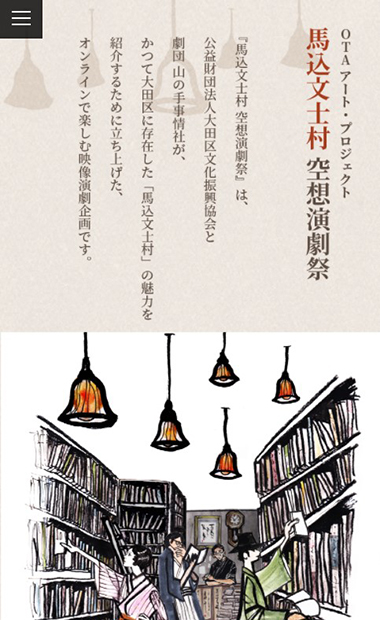 OTA アート・プロジェクト
馬込文士村 空想演劇祭
『馬込文士村 空想演劇祭』は、
公益財団法人大田区文化振興協会と
劇団 山の手事情社が、
かつて大田区に存在した「馬込文士村」の魅力を
紹介するために立ち上げた、
オンラインで楽しむ映像演劇企画です。